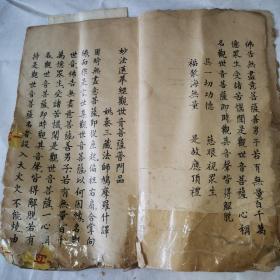 佛告無盡意菩薩善男子若有無量百千萬
億眾生受諸苦惱聞是觀世音菩薩一心稱
名觀世音菩薩即時觀其音聲皆得解脫
具一切功德 慈眼視眾生
福聚海無量 是故應頂禮
妙法蓮華經觀世音菩薩普門品
姚秦三藏法師鳩摩羅什譯
爾時無盡意菩薩即從座起偏袒右肩合掌向
佛而作是言世尊觀世音菩薩以何因緣名觀
世音佛告無盡意菩薩善男子若有無量百千
萬億眾生受諸苦惱聞是觀世音菩薩一心稱
名觀世音菩薩即時觀其音聲皆得解脫若有
持是觀世音菩薩名者設入大火火不能燒由